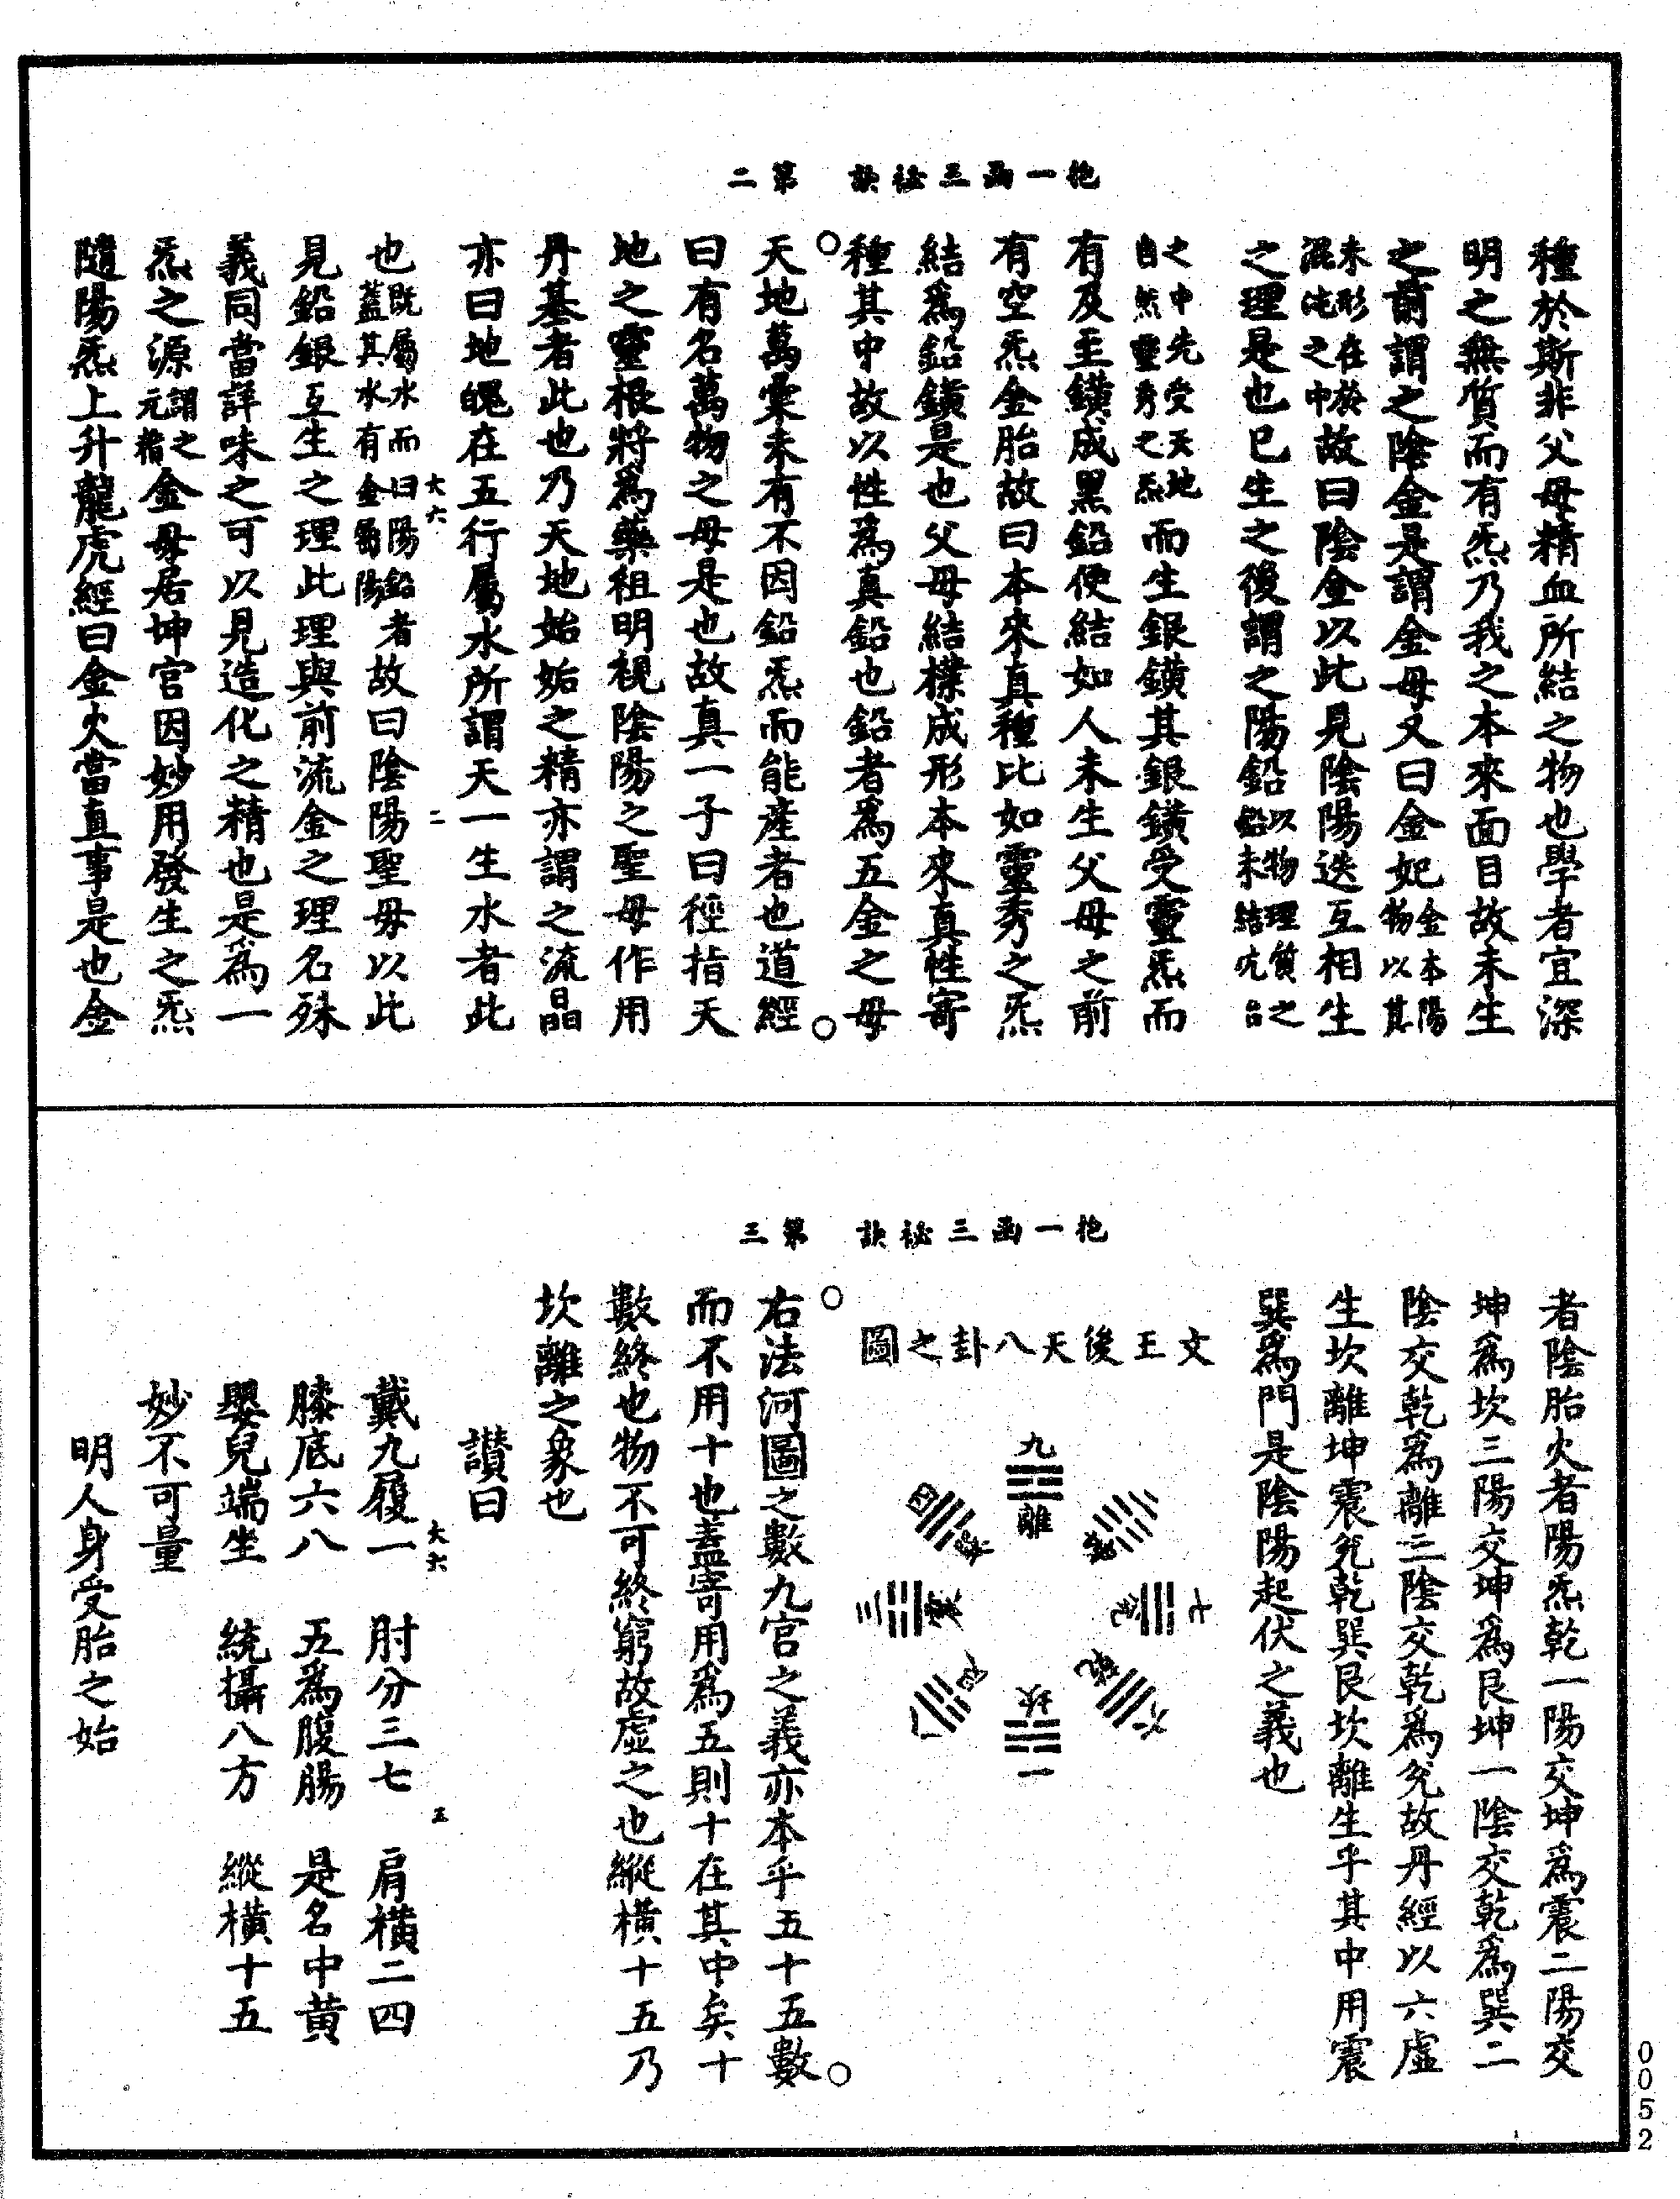 抱一函三祕訣　第二
種於斯非父母精血所結之物也學者宜深
明之無質而有炁乃我之本來面目故未生
之前謂之陰金是謂金母又曰金妃金本陽物以其
未形在於混沌之中故曰陰金以此見陰陽迭互相生
之理是也巳生之後謂之陽鉛以物理質之鉛未結坑
之中先受天地自然靈秀之炁而生銀鑛其銀鑛受靈炁而
有及至鑛成黑鉛便結如人未生父母之前
有空炁金胎故曰本來真種比如靈秀之炁
結爲鉛鑛是也父母結樸成形本來真性寄
種其中故以性爲真鉛也鉛者爲五金之母
天地萬彙未有不因鉛炁而能產者也道經
曰有名萬物之母是也故真一子曰徑指天
地之靈根將爲藥祖明視陰陽之聖母作用
丹基者此也乃天地始姤之精亦謂之流晶
亦曰地魄在五行屬水所謂天一生水者此
大六　二
也旣屬水而曰陽鉛者蓋其水有金蜀陽故曰陰陽聖母以此
見鉛銀互生之理此理與前流金之理名殊
義同當詳味之可以見造化之精也是爲一
炁之源謂之元精金母居坤宮因妙用發生之炁
隨陽炁上升龍虎經曰金火當直事是也金
抱一函三祕訣　第三
者陰胎火者陽炁乾一陽交坤爲震二陽交
坤爲坎三陽交坤爲艮坤一陰交乾爲巽二
陰交乾爲離三陰交乾爲兊故丹經以六虛
生坎離坤震兊乾巽艮坎離生乎其中用震
巽爲門是陰陽起伏之義也
文王後天八卦之圖
九
離
四
巽
坤
三
震
兊
七
八
艮
乾
六
坎
一
右法河圖之數九宮之義亦本乎五十五數
而不用十也蓋寄用爲五則十在其中矣十
數終也物不可終窮故虛之也縱橫十五乃
坎離之象也
讚曰
大六　五
戴九履一　肘分三七　肩橫二四
膝底六八　五爲腹腸　是名中黃
嬰兒端坐　統攝八方　縱橫十五
妙不可量
明人身受胎之始
0052